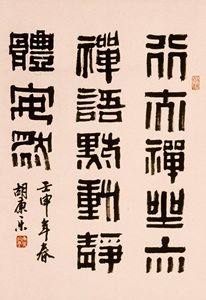 行亦禪坐亦
禪語默動靜
體安然
壬申年春
胡康